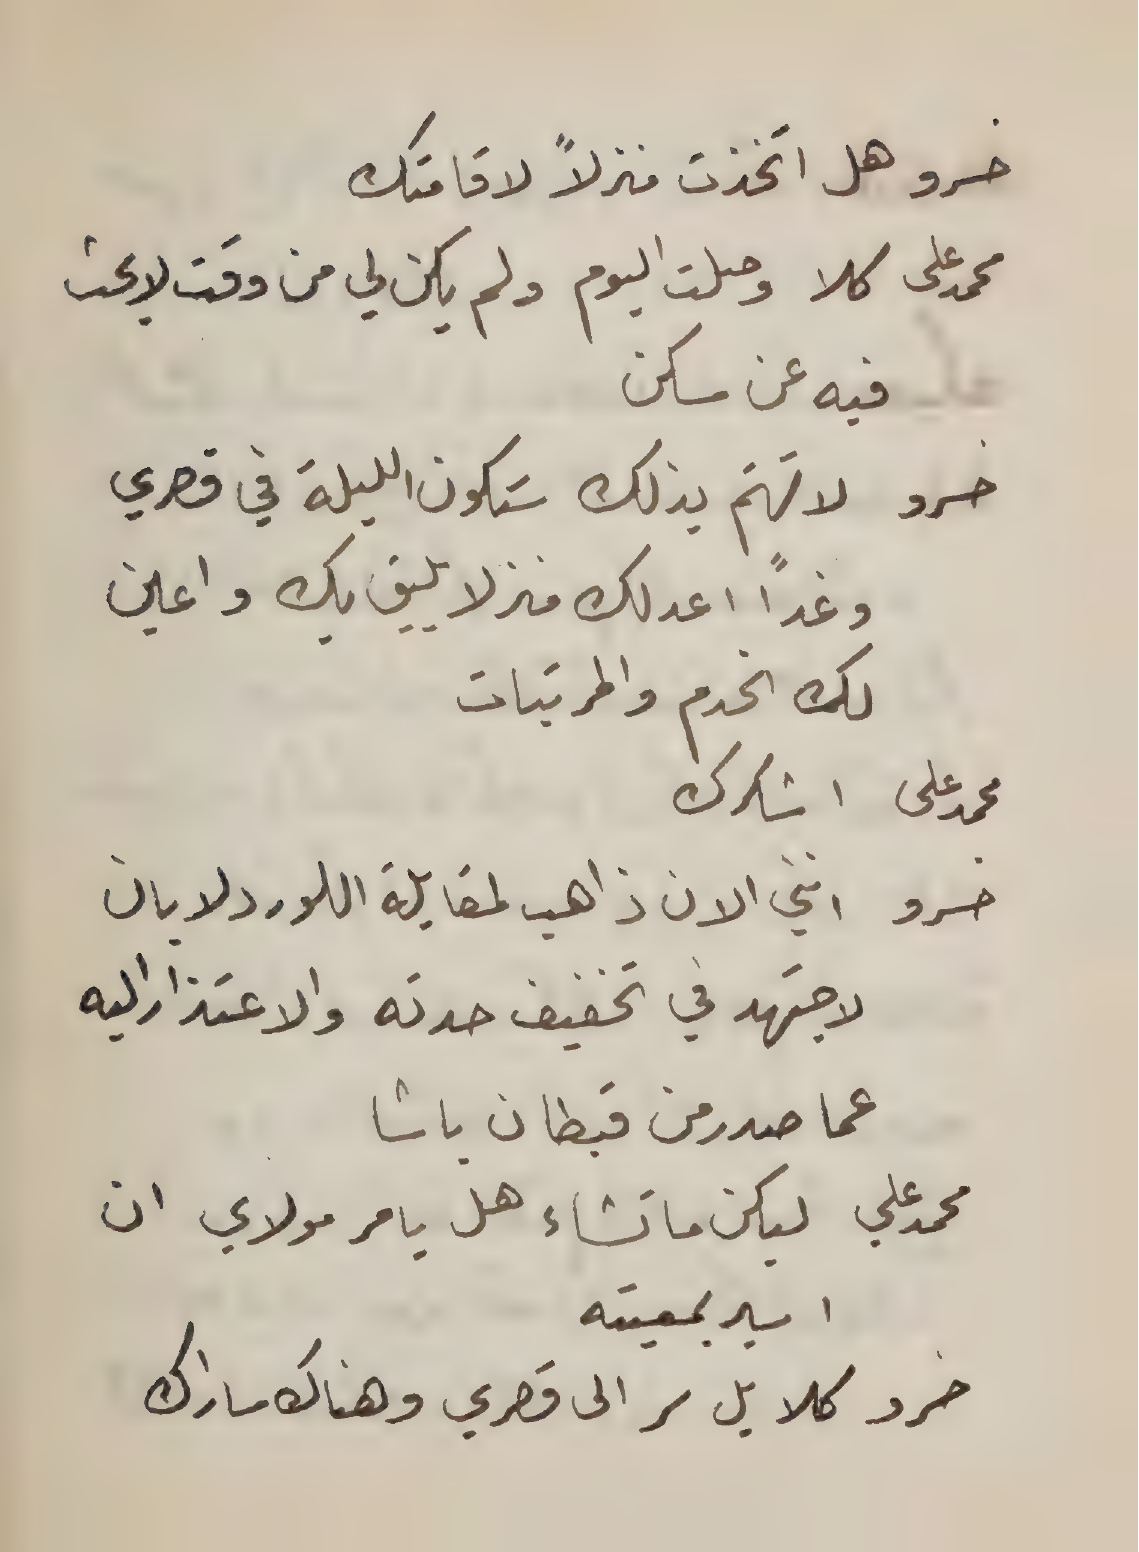 خسرو هل اتخذت منزلاً لاقامتك
محمد على كلا وصلت اليوم ولم يكن لي من وقت لابحث
فيه عن مسكن
خسرو لا تهتم بذلك ستكون الليلة في قصري
وغداً اعد لك منزلا يليق بك واعين
لك الخدم والمرتبات
محمد على اشكرك
خسرو انني الان ذاهب لمقابلة اللورد لابان
لاجتهد في تخفيف حدته والاعتذار اليه
عما صدر من قبطان باشا
محمد علي ليكن ما تشاء هل يامر مولاي ان
اسير بمعيته
خسرو كلا بل سر الى قصري وهناك ساراك